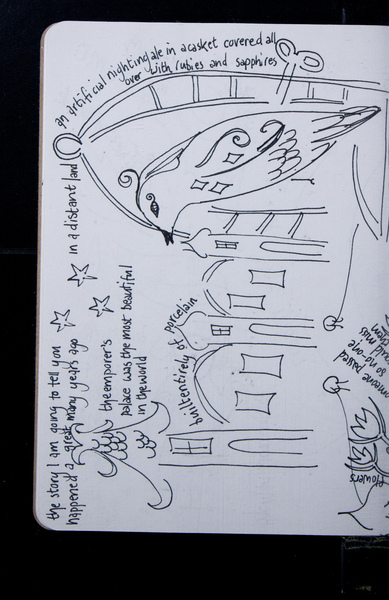 the story I am going to tell you
happened a great many years ago
in a distant land
the emporer's
palace was the most beautiful
in the world
built entirely of porcelain
an artificial nightingale in a casket covered all
over with rubies and sapphires
passed
so no-one
could miss
them
flowers